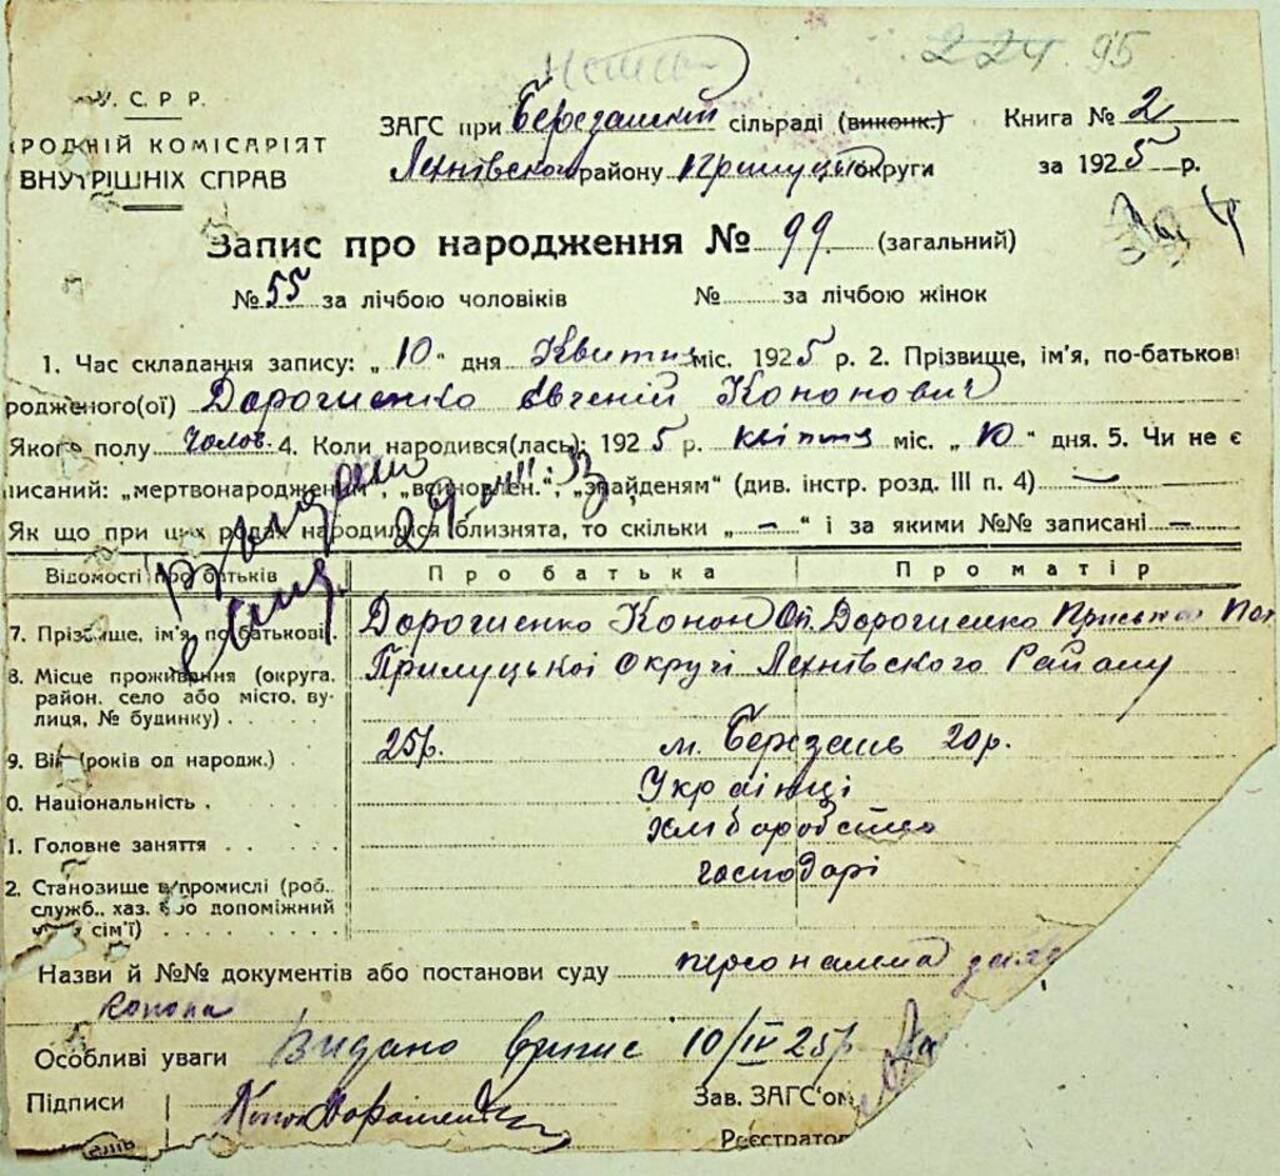 224 95
У. С. Р. Р.
РОДНІЙ КОМІСАРІЯТ
ВНУТРІШНІХ СПРАВ
ЗАГС при Березанській сільраді (виконк.) Книга № 2
Лехнівського району Прилуцької округи за 1925 р.
Запис про народження № 99 (загальний)
№ 55 за лічбою чоловіків № за лічбою жінок
1. Час складання запису: „ 10 " дня Квітня міс. 1925 р. 2. Прізвище, ім'я, по-батькові
родженого(ої) Дорошенко Євгеній Кононович
Якого полу чолов. 4. Коли народився(лась): 1925 р. квітня міс. „ 10 " дня. 5. Чи не є
писаний: „мертвонародженим", „всиновлен.", „знайденям" (див. інстр. розд. III п. 4) —
Як що при цих родах народилися близнята, то скільки „ — " і за якими №№ записані —
Відомості про батьків Про батька Про матір
7. Прізвище, ім'я, по батькові Дорошенко Конон Оп. Дорошенко
8. Місце проживання (округа, Прилуцької Округі Лехнівского Району
район, село або місто, ву-
лиця, № будинку)
9. Вік (років од народж.) 25р. м. Березань 20р.
0. Національність Українці
1. Головне заняття хліборобство
2. Становище в промислі (роб., господарі
служб., хаз. або допоміжний
член сім'ї)
Назви й №№ документів або постанови суду персональна
Конона
Особливі уваги Видано випис 10/IV 25р
Підписи Зав. ЗАГС'ом
Конон Дорошенко
Реєстратор